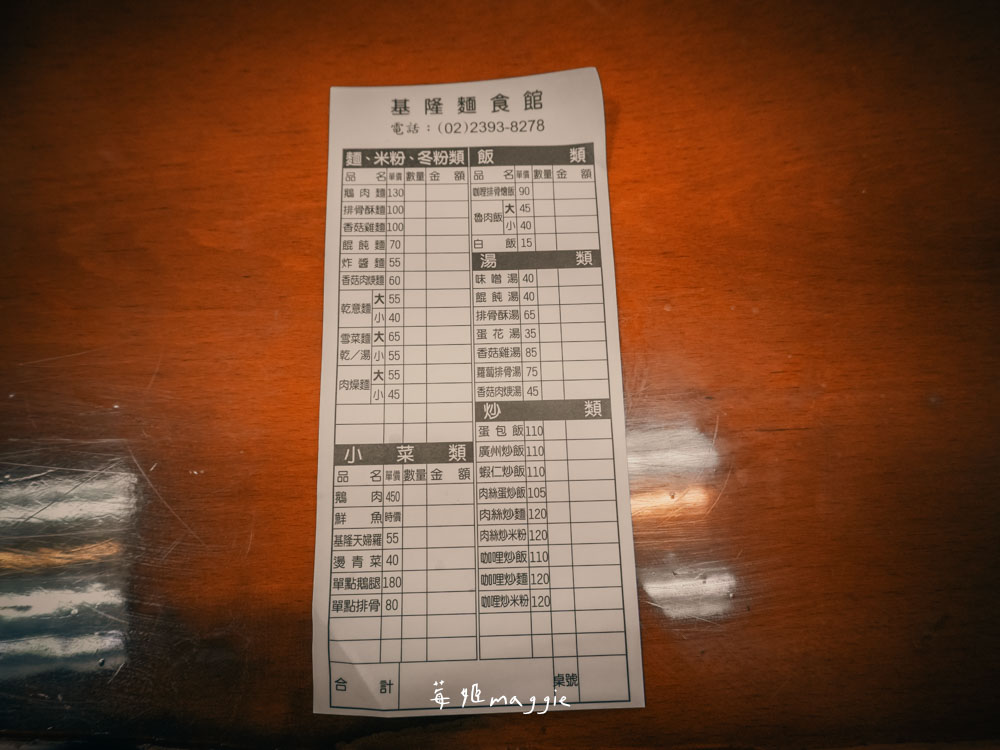 基隆麵食館
電話：(02)2393-8278
麵、米粉、冬粉類
品名 單價 數量 金額
鵝肉麵 130
排骨酥麵 100
香菇雞麵 100
餛飩麵 70
炸醬麵 55
香菇肉焿麵 60
乾意麵 大 55
小 40
雪菜麵 大 65
乾／湯 小 55
肉燥麵 大 55
小 45
小菜類
品名 單價 數量 金額
鵝肉 450
鮮魚 時價
基隆天婦羅 55
燙青菜 40
單點鵝腿 180
單點排骨 80
飯類
品名 單價 數量 金額
咖哩排骨燴飯 90
魯肉飯 大 45
小 40
白飯 15
湯類
味噌湯 40
餛飩湯 40
排骨酥湯 65
蛋花湯 35
香菇雞湯 85
蘿蔔排骨湯 75
香菇肉焿湯 45
炒類
蛋包飯 110
廣州炒飯 110
蝦仁炒飯 110
肉絲蛋炒飯 105
肉絲炒麵 120
肉絲炒米粉 120
咖哩炒飯 110
咖哩炒麵 120
咖哩炒米粉 120
合計 桌號
莓姬maggie